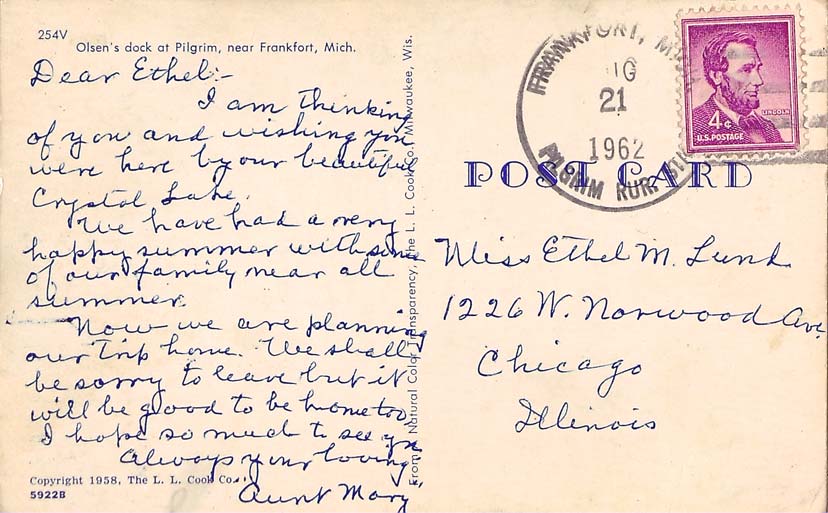 254V
Olsen's dock at Pilgrim, near Frankfort, Mich.
Dear Ethel:-
I am thinking
of you and wishing you
were here by our beautiful
Crystal Lake.
We have had a very
happy summer with some
of our family near all
summer.
Now we are planning
our trip home. We shall
be sorry to leave but it
will be good to be home too.
I hope so much to see you
Always your loving
Aunt Mary
Copyright 1958, The L. L. Cook Co.
5922B
From Natural Color Transparency, The L. L. Cook Co., Milwaukee, Wis.
FRANKFORT, MICH
UG
21
1962
PILGRIM RUR. STA
4¢
LINCOLN
U.S. POSTAGE
POST CARD
Miss Ethel M. Lund
1226 W. Norwood Ave.
Chicago
Illinois